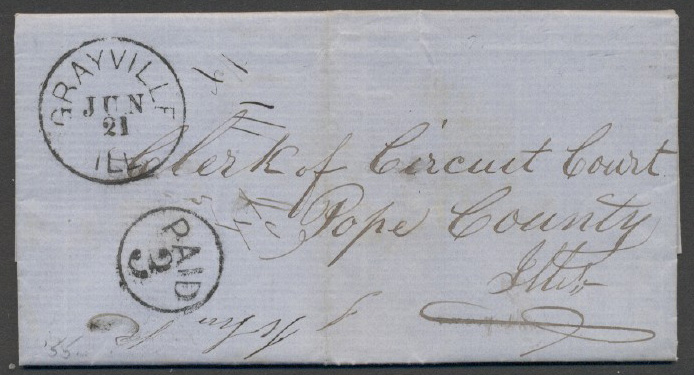 GRAYVILLE
JUN
21
ILL
Clerk of Circuit Court
Pope County
Ills
PAID
3
'55